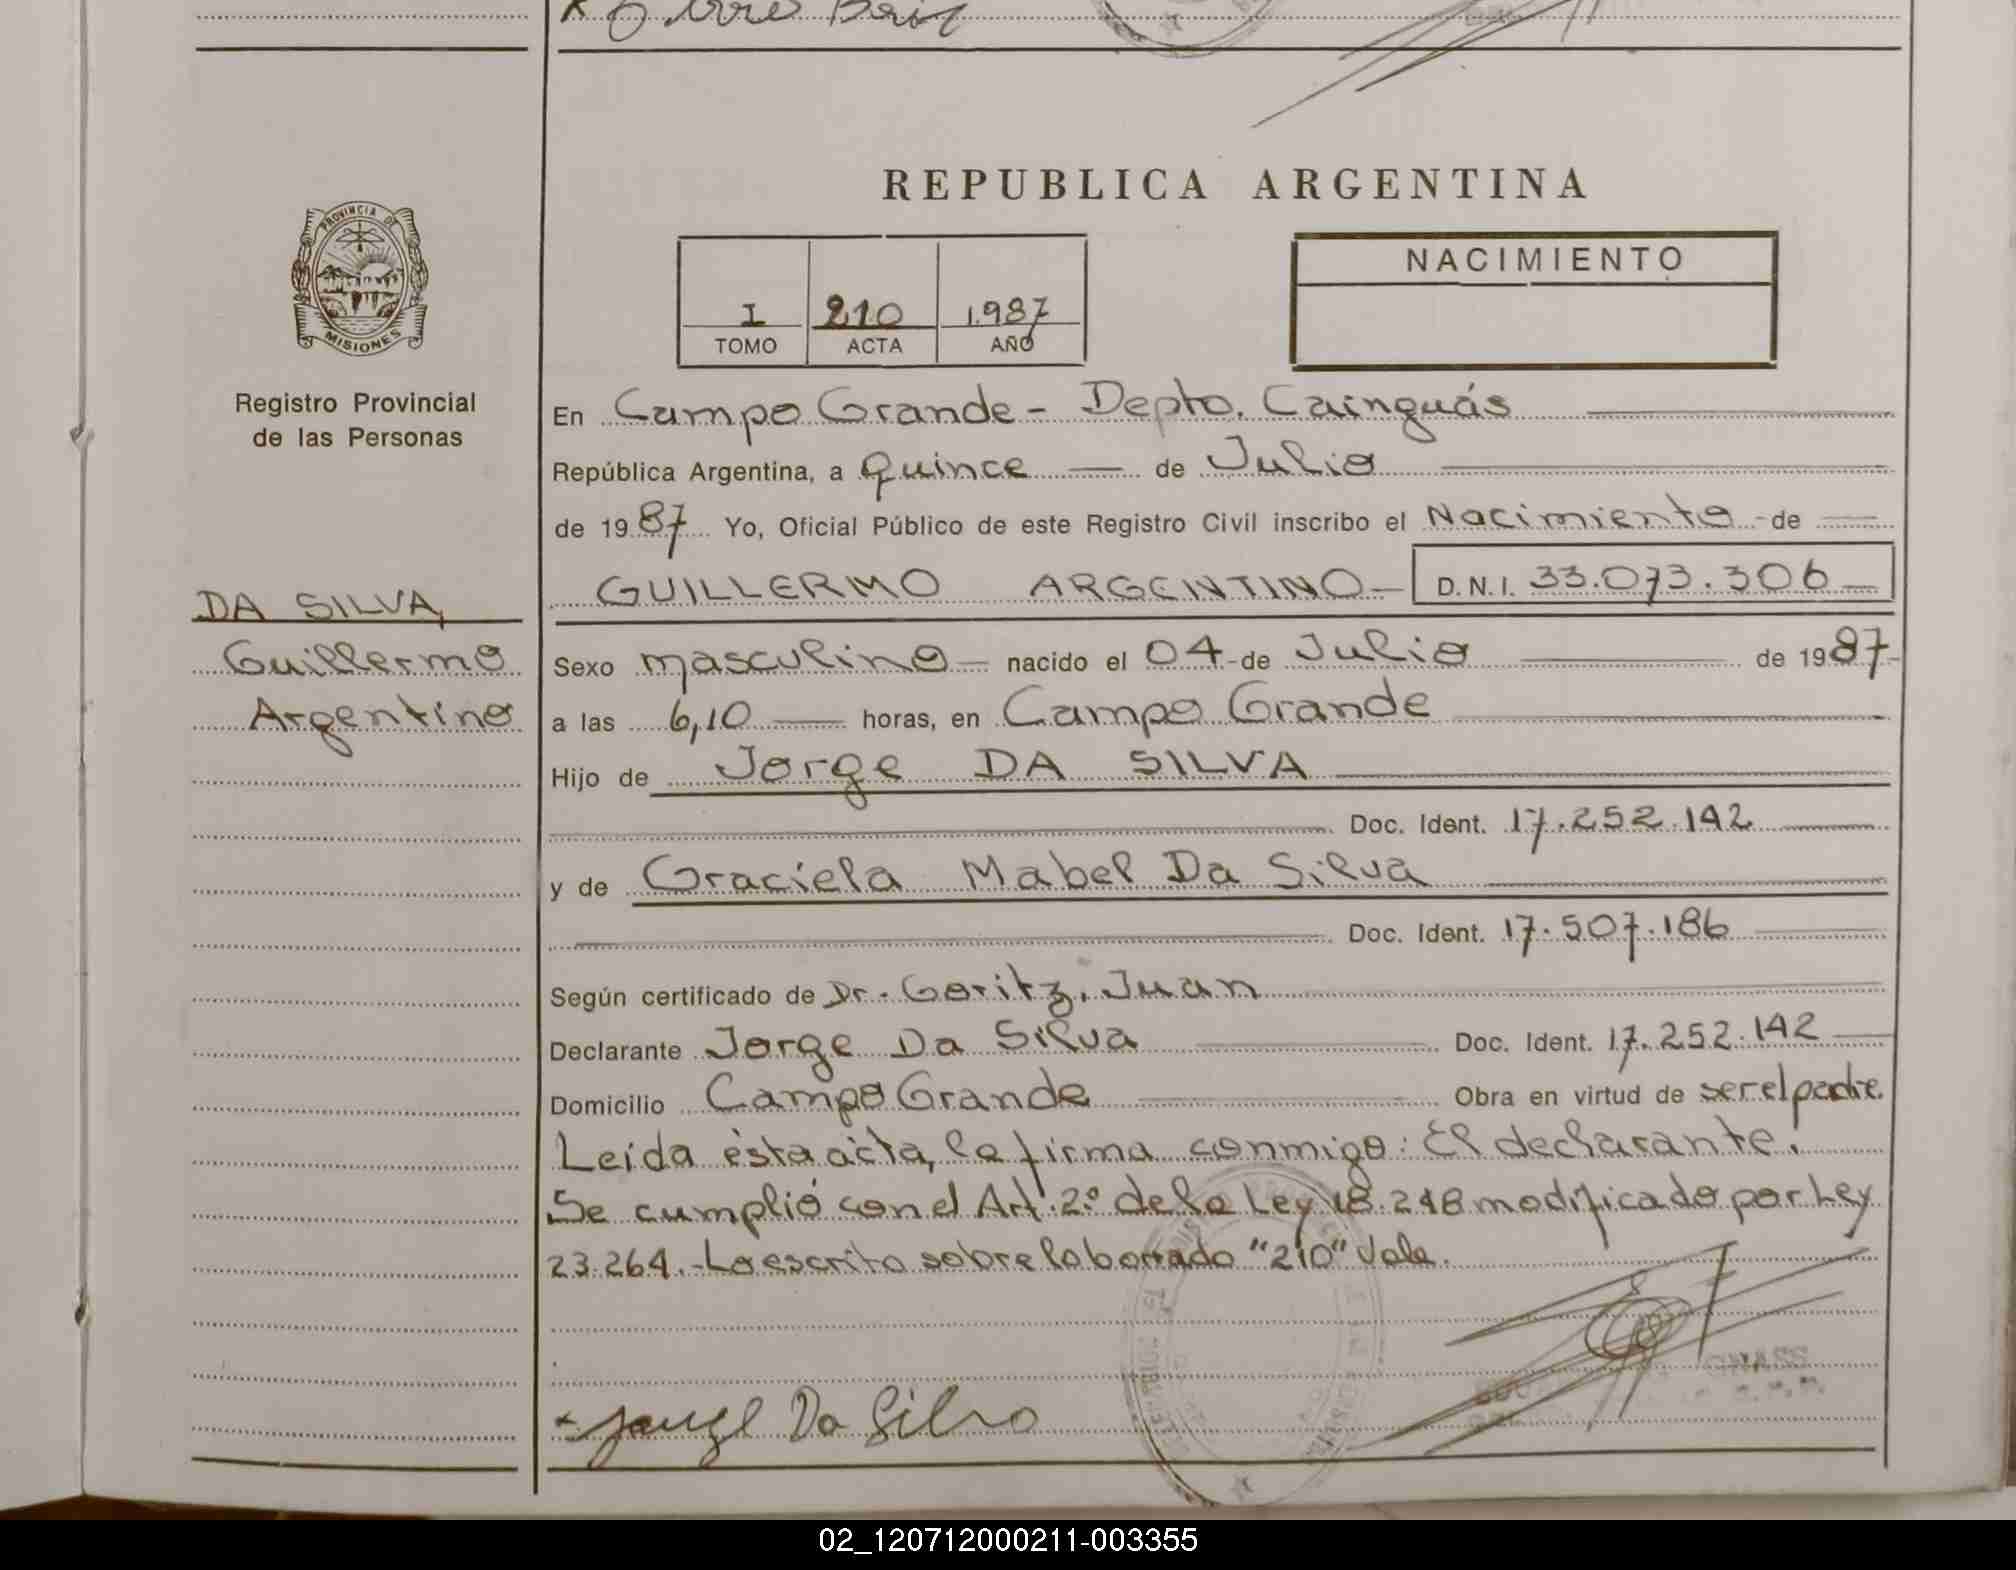 REPUBLICA ARGENTINA
PROVINCIA DE
MISIONES
Registro Provincial
de las Personas
I 210 1.987
TOMO ACTA AÑO
NACIMIENTO
En Campo Grande - Depto. Cainguás
República Argentina, a Quince de Julio
de 1987 Yo, Oficial Público de este Registro Civil inscribo el Nacimiento de
GUILLERMO ARGENTINO D.N.I. 33.073.306
DA SILVA
Guillermo
Argentino
Sexo masculino nacido el 04 de Julio de 1987
a las 6,10 horas, en Campo Grande
Hijo de Jorge DA SILVA
Doc. Ident. 17.252.142
y de Graciela Mabel Da Silva
Doc. Ident. 17.507.186
Según certificado de Dr. Goritz, Juan
Declarante Jorge Da Silva Doc. Ident. 17.252.142
Domicilio Campo Grande Obra en virtud de ser el padre.
Leída ésta acta, la firma conmigo: El declarante.
Se cumplió con el Art. 2º de la Ley 18.248 modificado por Ley
23.264.- Lo escrito sobre lo borrado "210" Vale.
Da Silva
02_120712000211-003355